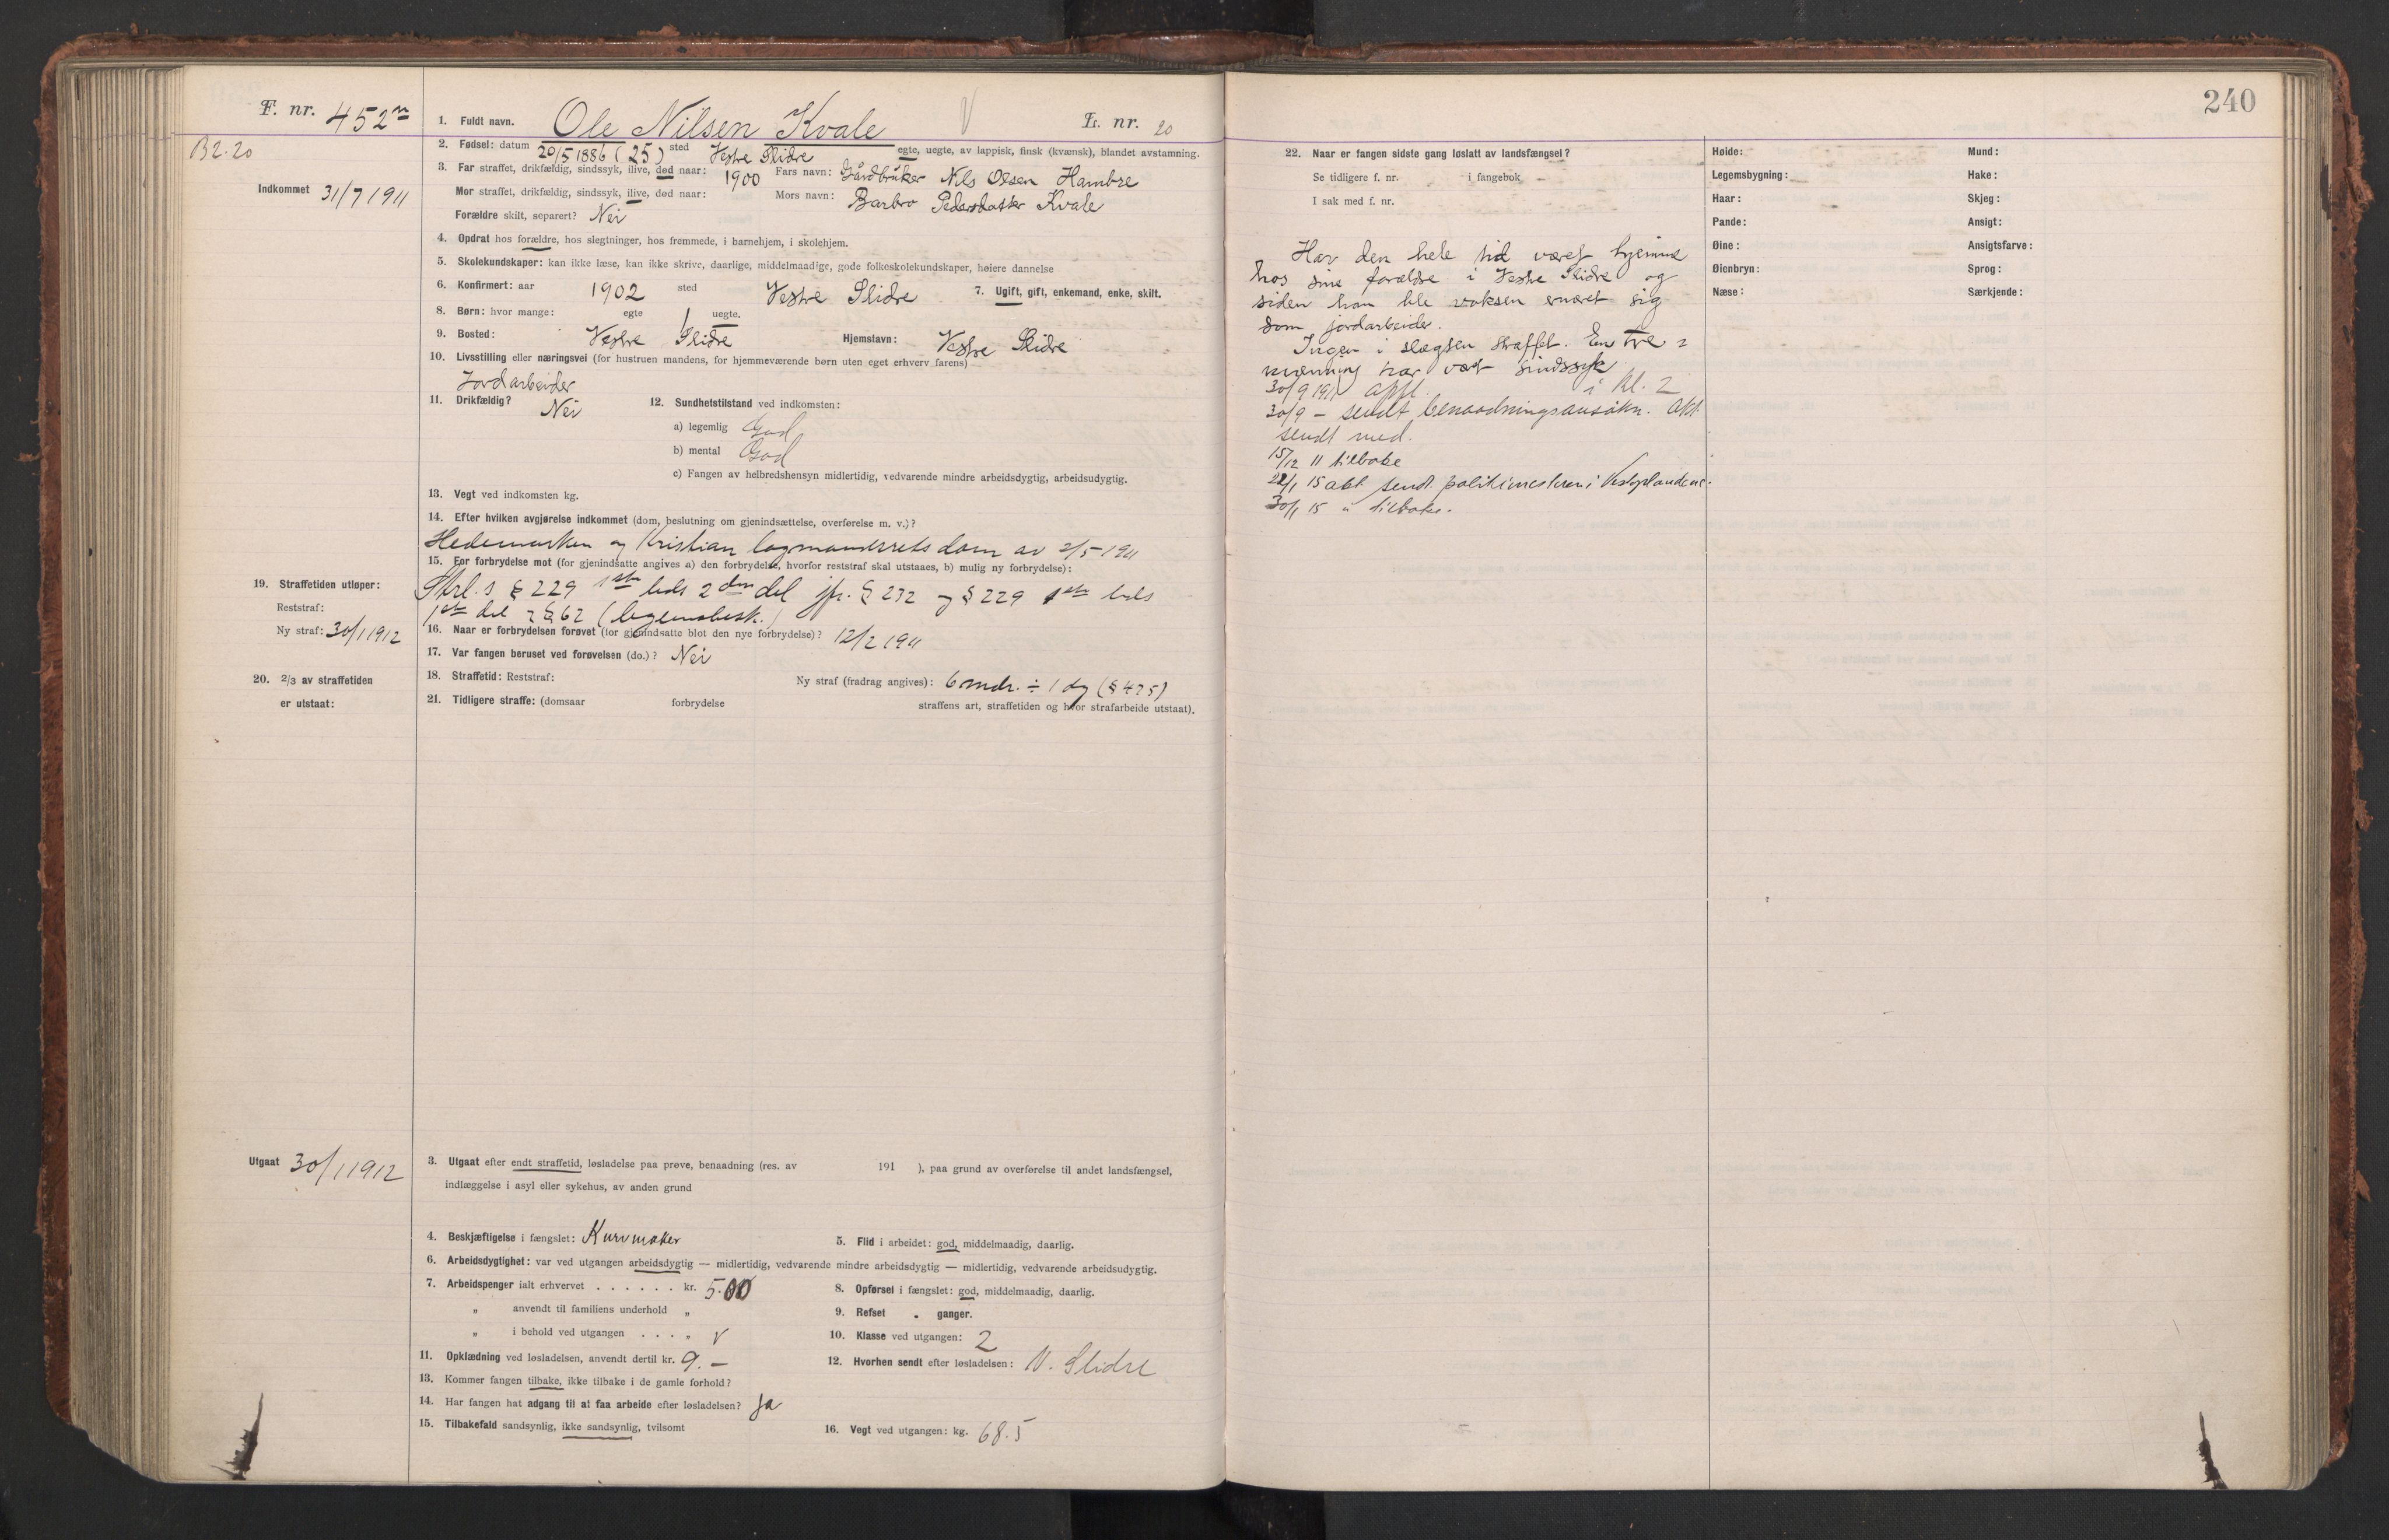 F. nr. 452
B2.20
Indkommet 31/7 1911
1. Fuldt navn. Ole Nilsen Kvale V L. nr. 20
2. Fødsel: datum 20/5 1886 (25) sted Vestre Slidre egte, uegte, av lappisk, finsk (kvænsk), blandet avstamning.
3. Far straffet, drikfældig, sindssyk, ilive, død naar: 1900 Fars navn: Gårdbruker Nils Olsen Hambre
Mor straffet, drikfældig, sindssyk, ilive, død naar: Mors navn: Barbro Pedersdatter Kvale
Forældre skilt, separert? Nei
4. Opdrat hos forældre, hos slegtninger, hos fremmede, i barnehjem, i skolehjem.
5. Skolekundskaper: kan ikke læse, kan ikke skrive, daarlige, middelmaadige, gode folkeskolekundskaper, høiere dannelse
6. Konfirmert: aar 1902 sted Vestre Slidre 7. Ugift, gift, enkemand, enke, skilt.
8. Børn: hvor mange: egte 1 uegte.
9. Bosted: Vestre Slidre Hjemstavn: Vestre Slidre
10. Livsstilling eller næringsvei (for hustruen mandens, for hjemmeværende børn uten eget erhverv farens)
Jordarbeider
11. Drikfældig? Nei 12. Sundhetstilstand ved indkomsten:
a) legemlig God
b) mental God
c) Fangen av helbredshensyn midlertidig, vedvarende mindre arbeidsdygtig, arbeidsudygtig.
13. Vegt ved indkomsten kg.
14. Efter hvilken avgjørelse indkommet (dom, beslutning om gjenindsættelse, overførelse m. v.)?
Hedemarken og Kristian lagmandsrets dom av 2/5 1911
15. For forbrydelse mot (for gjenindsatte angives a) den forbrydelse, hvorfor reststraf skal utstaaes, b) mulig ny forbrydelse):
Strl.s § 229 1ste leds 2den del jfr. § 232 og § 229 1ste leds
1ste del § 62 (legemsbesk.)
16. Naar er forbrydelsen forøvet (for gjenindsatte blot den nye forbrydelse)? 12/2 1911
17. Var fangen beruset ved forøvelsen (do.)? Nei
18. Straffetid: Reststraf: Ny straf (fradrag angives): 6 mdr. ÷ 1 dg (§ 475)
21. Tidligere straffe: (domsaar forbrydelse straffens art, straffetiden og hvor strafarbeide utstaat).
19. Straffetiden utløper:
Reststraf:
Ny straf: 30/1 1912
20. 2/3 av straffetiden
er utstaat:
Utgaat 30/1 1912
3. Utgaat efter endt straffetid, løsladelse paa prøve, benaadning (res. av 191 ), paa grund av overførelse til andet landsfængsel,
indlæggelse i asyl eller sykehus, av anden grund
4. Beskjæftigelse i fængslet: Kurvmaker 5. Flid i arbeidet: god, middelmaadig, daarlig.
6. Arbeidsdygtighet: var ved utgangen arbeidsdygtig — midlertidig, vedvarende mindre arbeidsdygtig — midlertidig, vedvarende arbeidsudygtig.
7. Arbeidspenger ialt erhvervet . . . . . . kr. 5.00 8. Opførsel i fængslet: god, middelmaadig, daarlig.
„ anvendt til familiens underhold „ 9. Refset ganger.
„ i behold ved utgangen . . . „ 10. Klasse ved utgangen: 2
11. Opklædning ved løsladelsen, anvendt dertil kr. 9.— 12. Hvorhen sendt efter løsladelsen: V. Slidre
13. Kommer fangen tilbake, ikke tilbake i de gamle forhold?
14. Har fangen hat adgang til at faa arbeide efter løsladelsen? Ja
15. Tilbakefald sandsynlig, ikke sandsynlig, tvilsomt 16. Vegt ved utgangen: kg. 68.5
240
22. Naar er fangen sidste gang løslatt av landsfængsel?
Se tidligere f. nr. i fangebok
I sak med f. nr.
Har den hele tid været hjemme
hos sine forældre i Vestre Slidre og
siden han ble voksen ernæret sig
som jordarbeider.
Ingen i slægten straffet. En tre-
menning har vært sindssyk
30/9 1911 oppfl. i Kl. 2
30/9 - sendt benaadningsansøkn. Akt.
sendt med.
15/12 11 tilbake
22/1 15 akt. sendt politimesteren i Vestoplandene.
30/1 15 " tilbake.
Høide:
Legemsbygning:
Haar:
Pande:
Øine:
Øienbryn:
Næse:
Mund:
Hake:
Skjeg:
Ansigt:
Ansigtsfarve:
Sprog:
Særkjende: